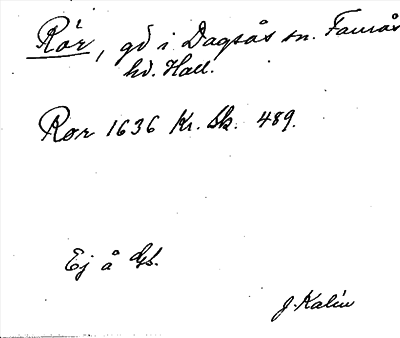 Rör, gd i Dagsås sn. Faurås
hd. Hall.
Rör 1636 Kr. Sk. 489.
Ej å Gs.
J. Kalin